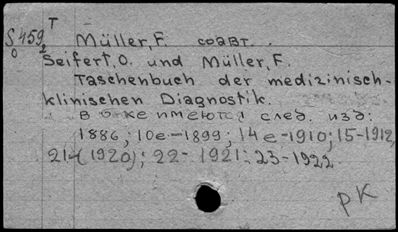 T
S 459
0 2
Müller, F. соавт.
Seifert, O. und Müller, F.
Taschenbuch der medizinisch-
klinischen Diagnostik.
имеются след. изд:
1886; 10e-1899; 14e-1910; 15-1912,
21-(1920); 22-1921; 23-1922
рК